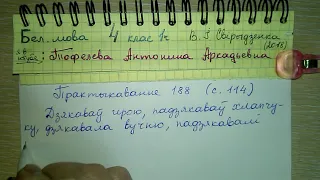 Бел. мова 4 клас 1ч. В. І. Свірыдзенка
(2018)
Тофелева Антонина Аркадьевна
Практыкаванне 188 (с. 114)
Дзякаваў герою, падзякаваў хлапчу-
ку, дзякавала вучню, падзякавалі